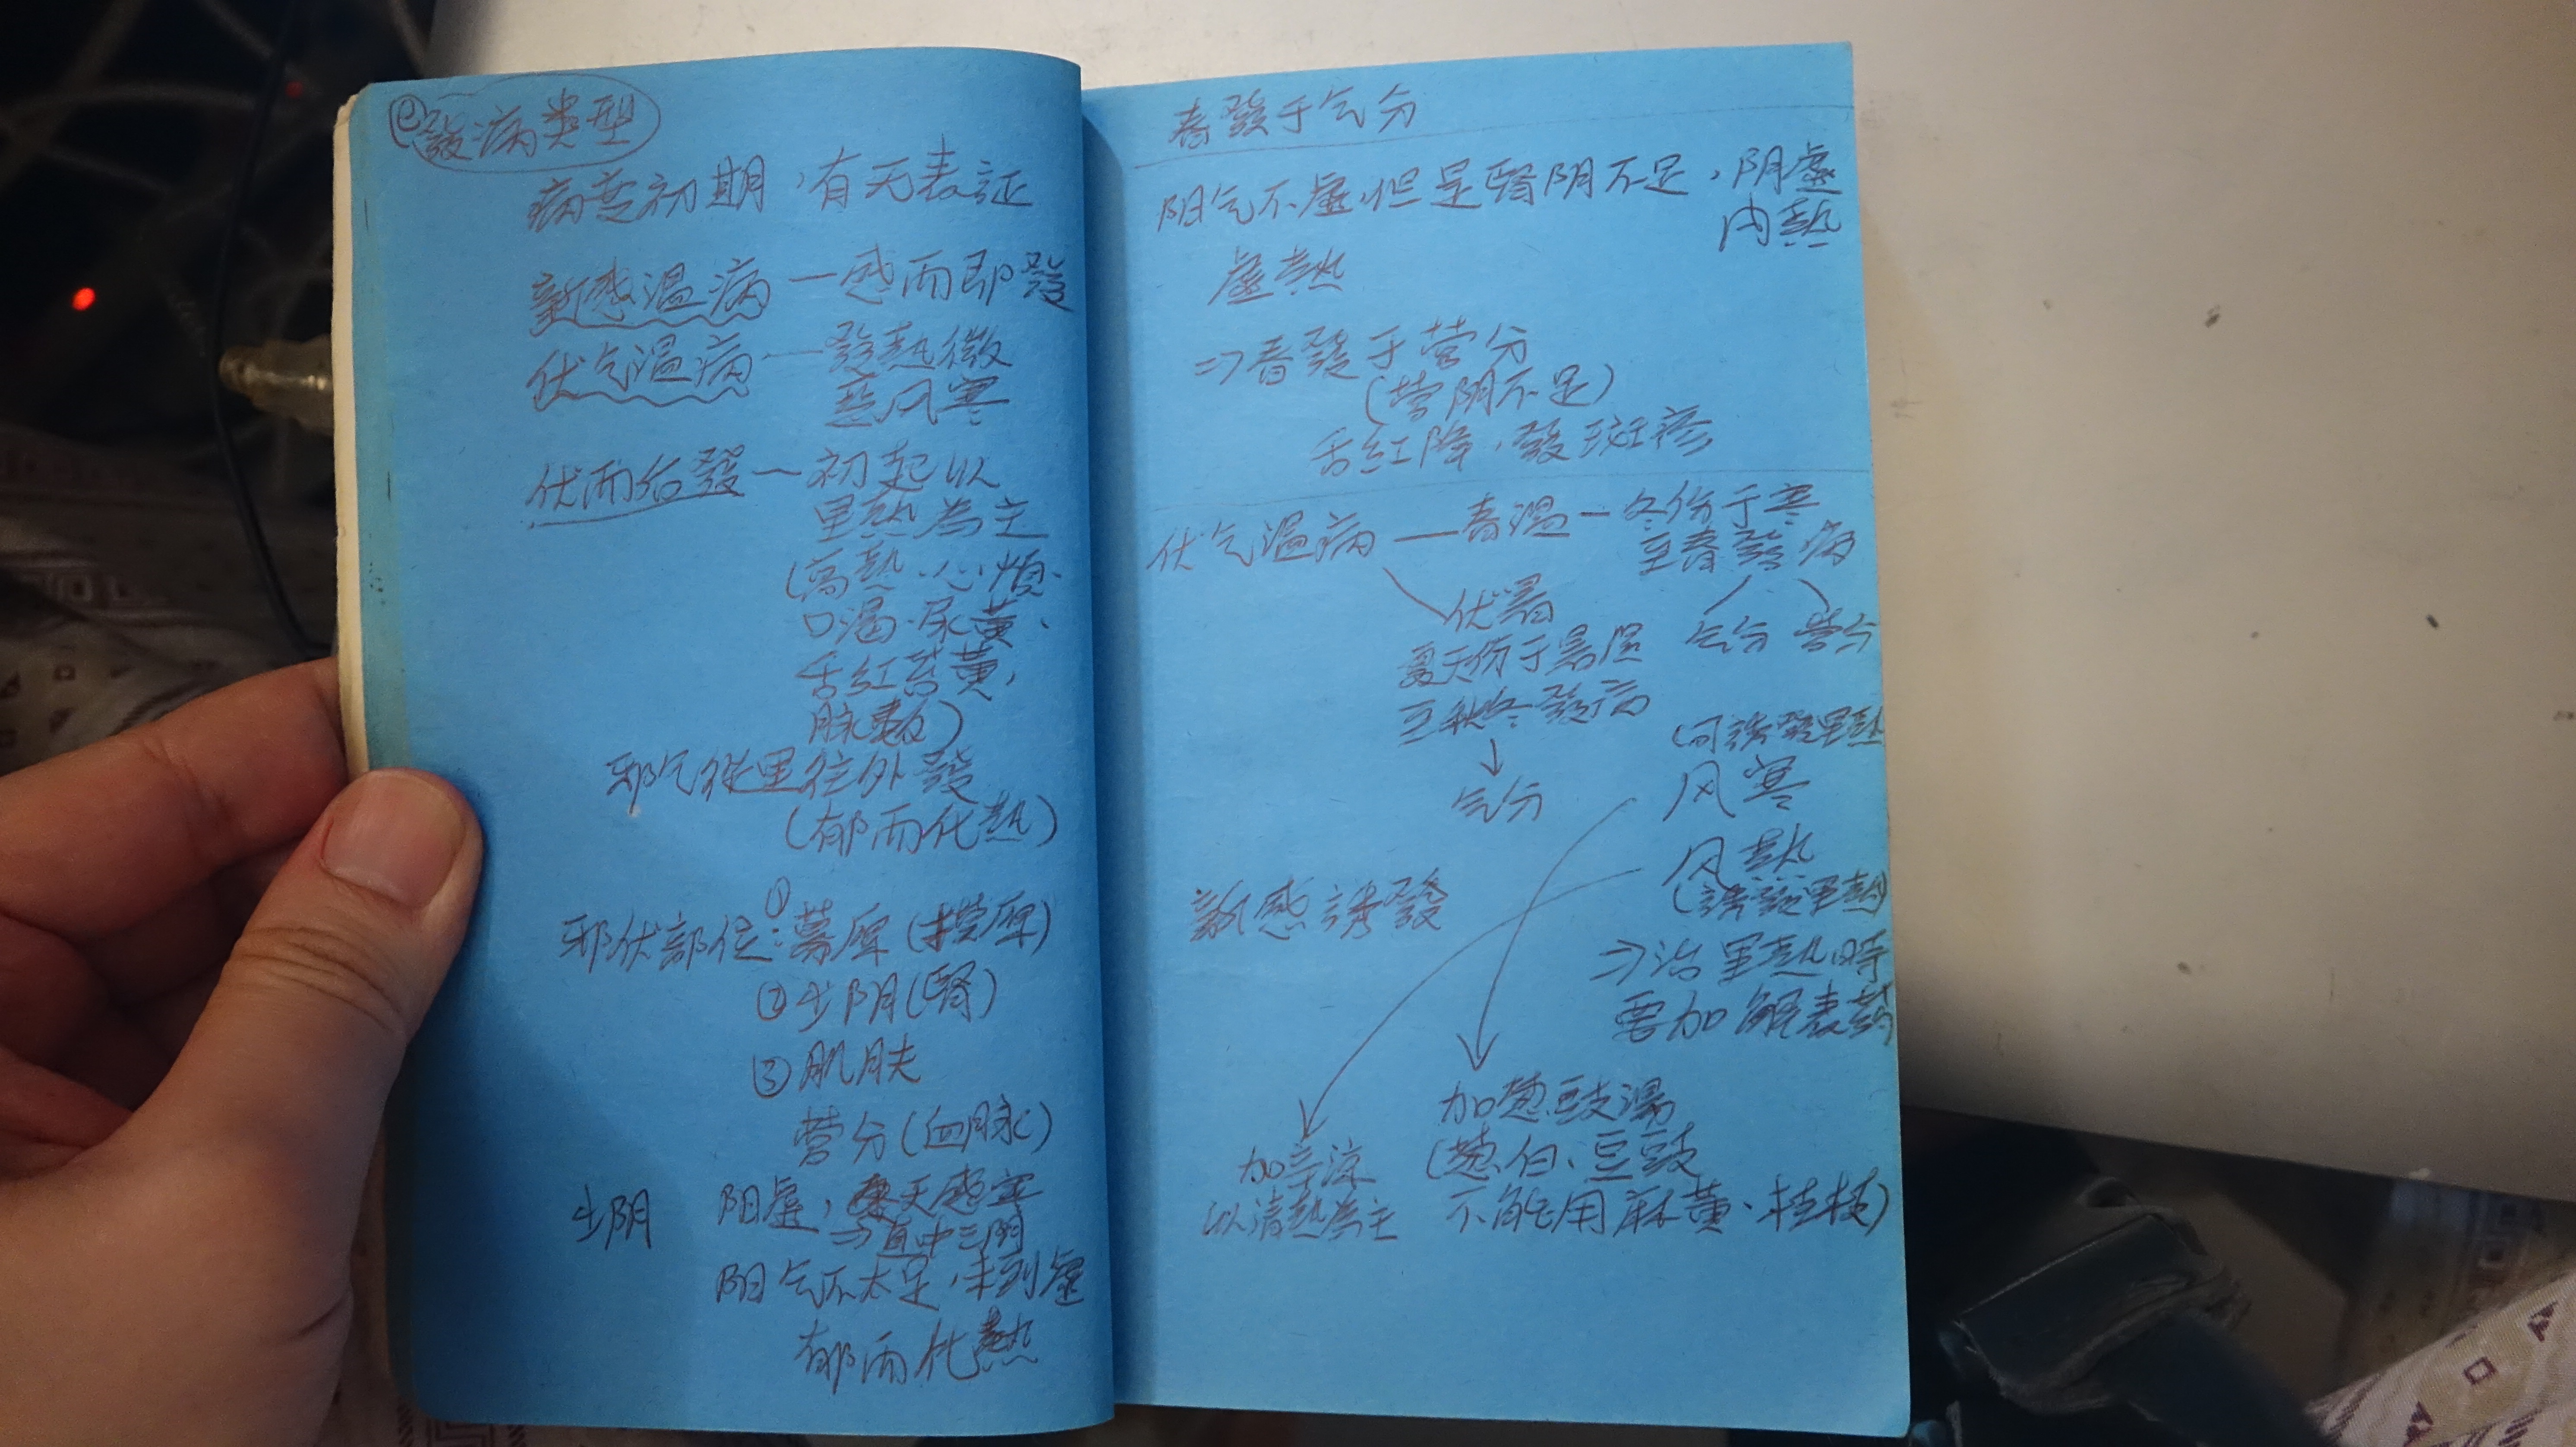 e 發病类型
病变初期，有无表証
新感温病 — 感而即發
伏气温病 — 發熱微
恶风寒
伏而后發 — 初起以
里熱為主
(高熱、心煩、
口渴、尿黄、
舌紅苔黄、
脉数)
邪气從里往外發
(郁而化熱)
邪伏部位：①募原(膜原)
②少阴(腎)
③肌肤
营分(血脉)
少阴 阳虚，冬天感寒
⇒直中三阴
阳气不太足，未到虚
郁而化熱
春發于气分
阳气不虚，但是腎阴不足，阴虚
内熱
虚熱
⇒春發于营分
(营阴不足)
舌紅降，發斑疹
伏气温病 — 春温 — 冬伤于寒
至春發病
气分 营分
伏暑
夏天伤于暑湿
至秋冬發病
↓
气分
(可誘發里熱
风寒
风熱
(誘發里熱)
新感誘發
⇒治里熱時
要加解表药
加葱豉湯
(葱白、豆豉
不能用麻黄、桂枝)
加辛凉
以清熱為主